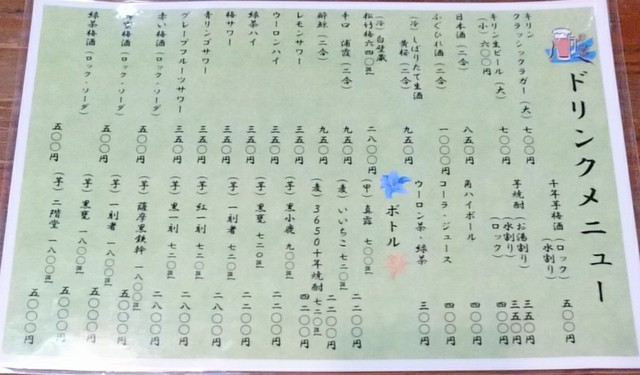 ドリンクメニュー
キリン
クラッシックラガー(大)七〇〇円
キリン生ビール(大)七〇〇円
(小)六〇〇円
日本酒(二合)八五〇円
ふぐひれ酒(二合)一〇〇〇円
(冷)しぼりたて生酒
黄桜(二合)九五〇円
(冷)白壁蔵
松竹梅六四〇㎖二八〇〇円
辛口 浦霞(二合)九五〇円
酔鯨(二合)九五〇円
レモンサワー 三五〇円
ウーロンハイ 三五〇円
緑茶ハイ 三五〇円
梅サワー 三五〇円
青リンゴサワー 三五〇円
グレープフルーツサワー 三五〇円
赤い梅酒(ロック・ソーダ)五〇〇円
梅酒(ロック・ソーダ)五〇〇円
緑茶梅酒(ロック・ソーダ)五〇〇円
千年芋梅酒(ロック)
(水割り)五〇〇円
芋焼酎(お湯割り)三五〇円
(水割り)三五〇円
(ロック)四〇〇円
角ハイボール 四〇〇円
コーラ・ジュース 四〇〇円
ウーロン茶・緑茶 三〇〇円
ボトル
(甲)真露 七〇〇㎖ 二二〇〇円
(麦)いいちこ 七二〇㎖ 二二〇〇円
(麦)3650十年焼酎 七二〇㎖ 四二〇〇円
(芋)黒小鹿 九〇〇㎖ 二二〇〇円
(芋)黒甕 七二〇㎖ 二二〇〇円
(芋)一刻者 七二〇㎖ 二八〇〇円
(芋)紅一刻 七二〇㎖ 二八〇〇円
(芋)黒一刻 七二〇㎖ 二八〇〇円
(芋)薩摩黒鉄幹 一八〇〇㎖ 五〇〇〇円
(芋)一刻者 一八〇〇㎖ 五〇〇〇円
(芋)黒甕 一八〇〇㎖ 五〇〇〇円
(芋)二階堂 一八〇〇㎖ 五〇〇〇円